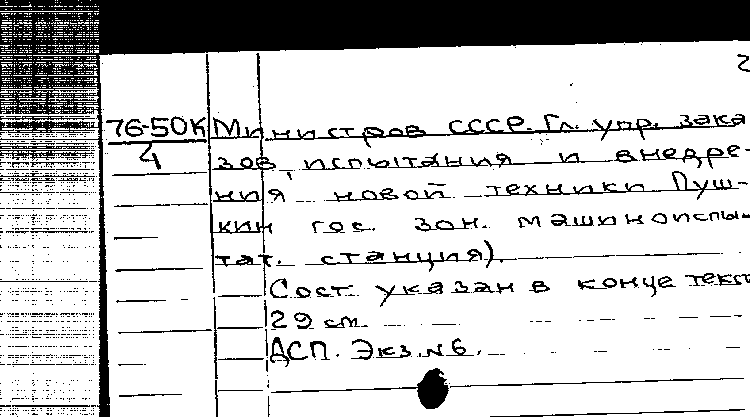 2
76-50К Министров СССР. Гл. упр. зака
4 зов, испытания и внедре-
ния новой техники Пуш-
кин гос. зон. машиноиспы-
тат. станция).
Сост указан в конце текст
29 см.
ДСП. Экз. № 6.